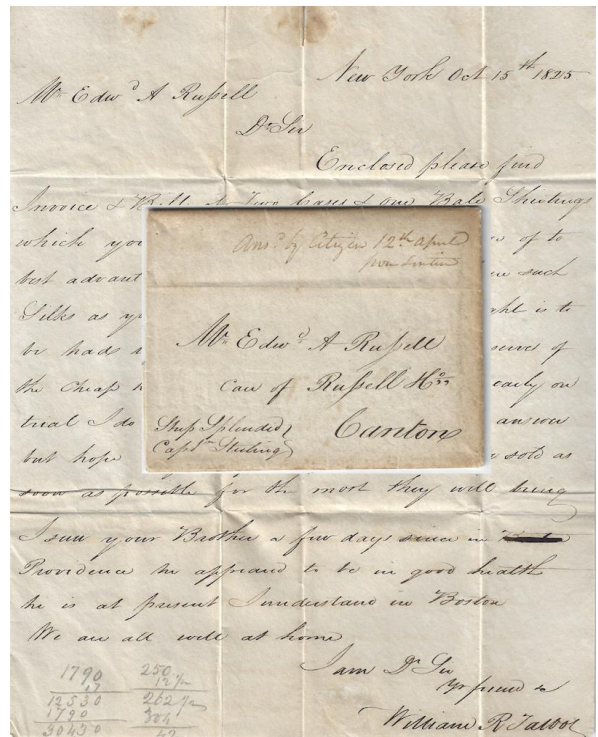 New York Oct 15th 1825
Mr Edwd A Russell
Dr Sir
Enclosed please find
Invoice & Bill Two Cases & one Bale Sheetings
which you of to
best advant such
Silks as is to
be had of
the cheap early on
trial I do answer
but hope sold as
soon as possible for the most they will bring
I saw your Brother a few days since in
Providence he appeard to be in good health
he is at present I understand in Boston
We are all well at home
I am Dr Sir
Yr friend &
William R Talbot
Ansd by Citizen 12th April
from Lintin
Mr Edwd A Russell
care of Russell
Ship Splended
Captn
Canton
1790
17
12530
1790
30430
250
12 1/2
262 1/2
304
42